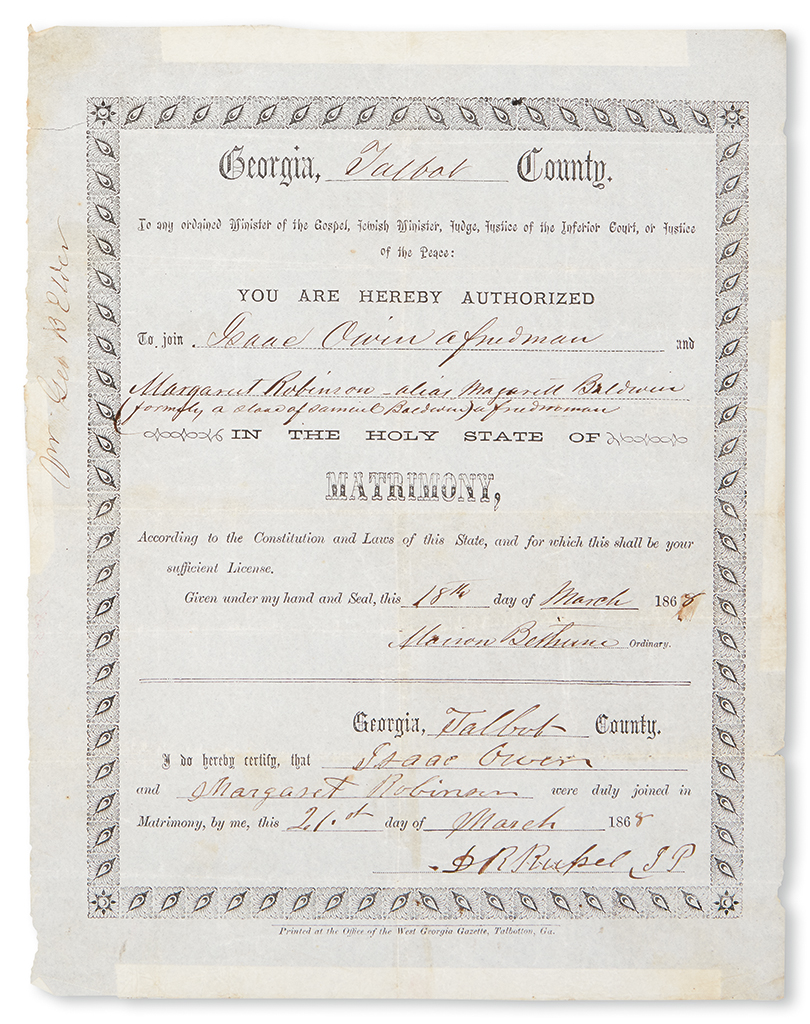 Georgia, Talbot County.
To any ordained Minister of the Gospel, Jewish Minister, Judge, Justice of the Inferior Court, or Justice
of the Peace:
YOU ARE HEREBY AUTHORIZED
To join Isaac Owin a freedman and
Margaret Robinson - alias Magarett Baldwin
(formerly a slave of Samuel Baldwin) a freedwoman
IN THE HOLY STATE OF
MATRIMONY,
According to the Constitution and Laws of this State, and for which this shall be your
sufficient License.
Given under my hand and Seal, this 18th day of March 1868
Marion Bethune Ordinary.
Georgia, Talbot County.
I do hereby certify, that Isaac Owen
and Margaret Robinson were duly joined in
Matrimony, by me, this 21.st day of March 1868
R Russel J P
Printed at the Office of the West Georgia Gazette, Talbotton, Ga.
Geo B Elder